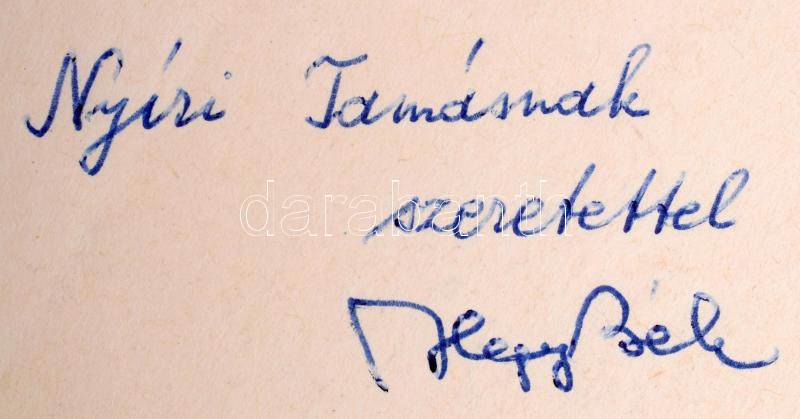 Nyíri Tamásnak
darabanth
szeretettel
Hegyi Béla